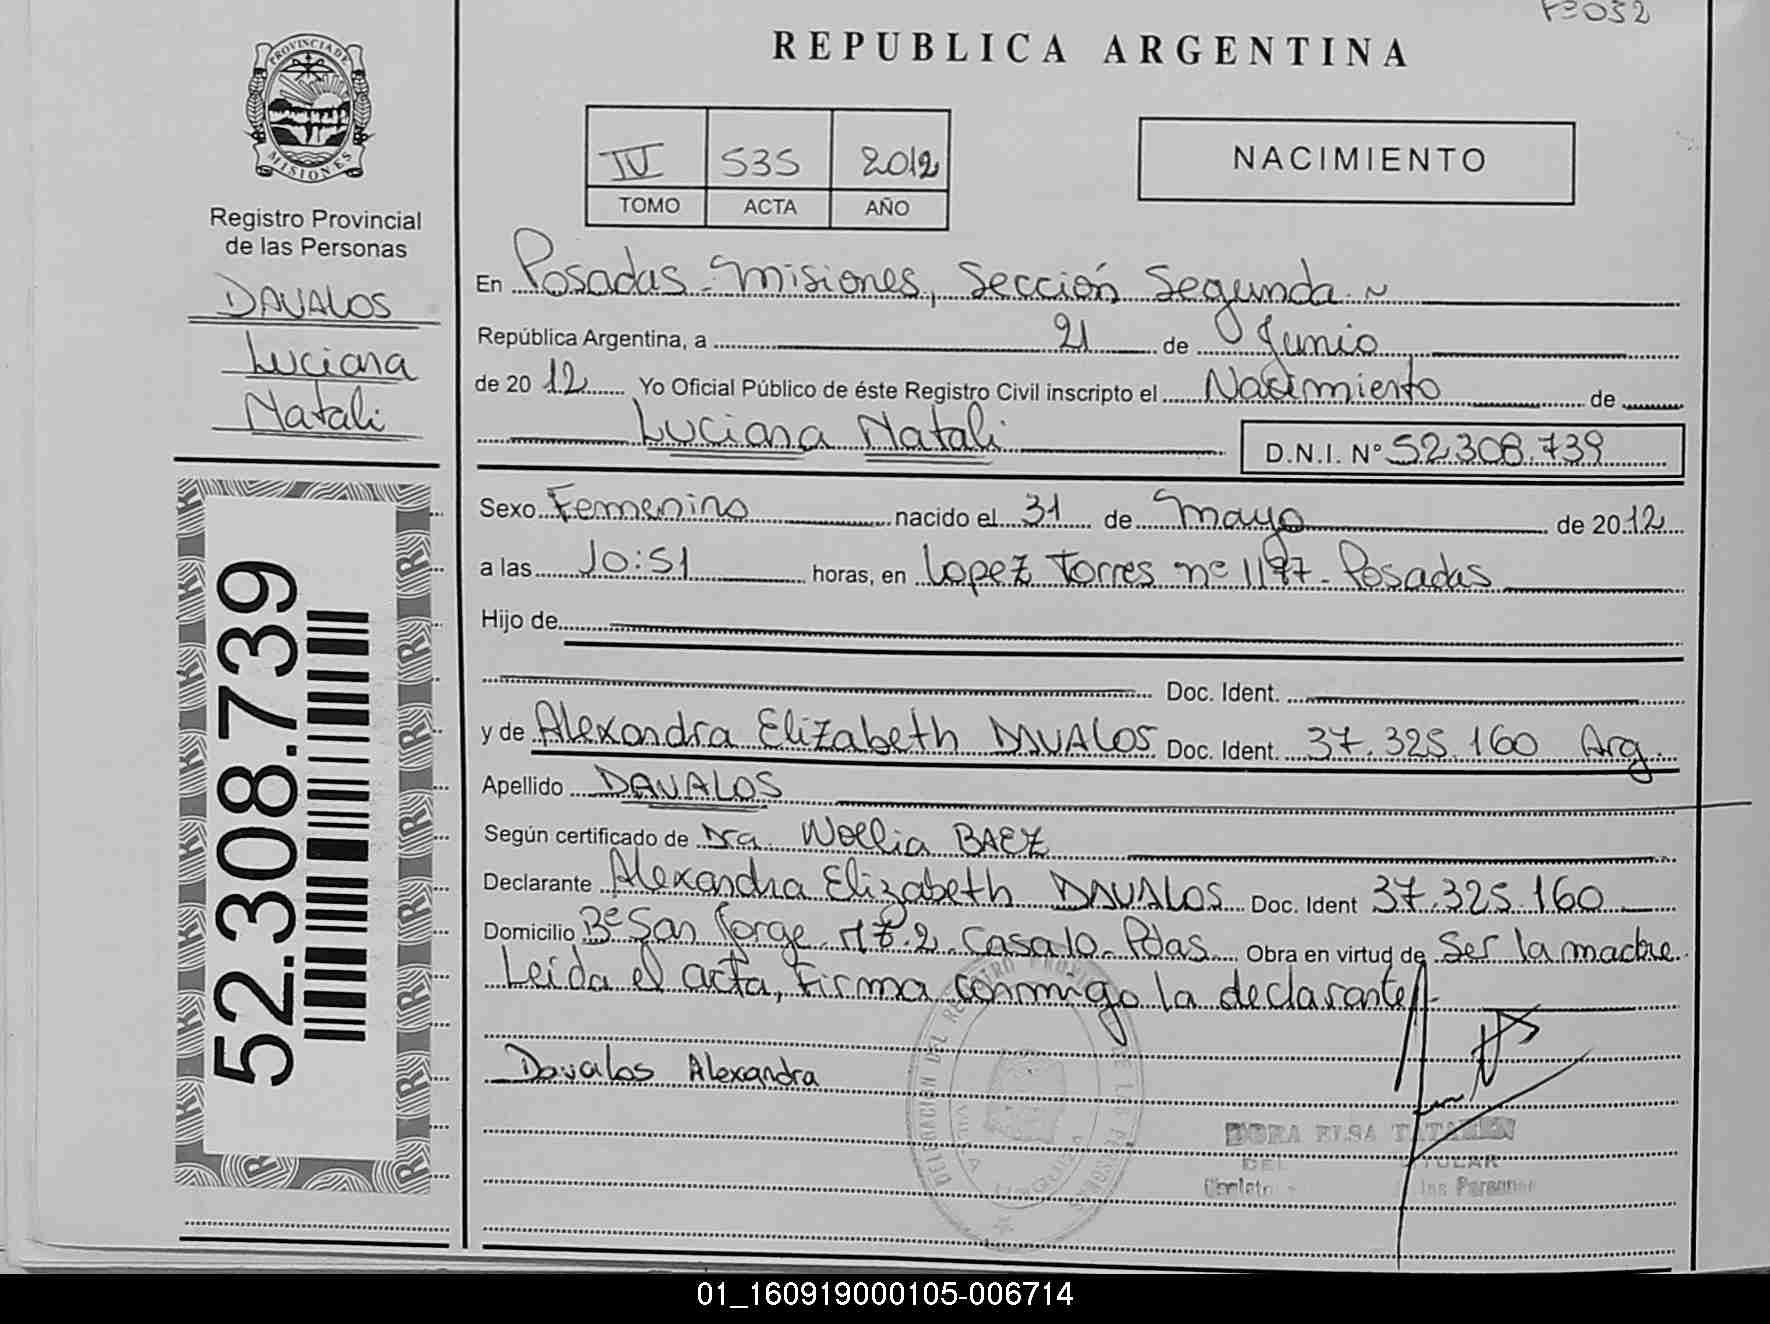 REPUBLICA ARGENTINA
PROVINCIA DE MISIONES
Registro Provincial
de las Personas
DAVALOS
Luciana
Natali
52.308.739
IV 535 2012
TOMO ACTA AÑO
NACIMIENTO
En Posadas - Misiones, Sección Segunda.
República Argentina, a 21 de Junio
de 2012 Yo Oficial Público de éste Registro Civil inscripto el Nacimiento de
Luciana Natali D.N.I. Nº 52.308.739
Sexo Femenino nacido el 31 de Mayo de 2012
a las 10:51 horas, en Lopez Torres nº 1197 - Posadas
Hijo de
Doc. Ident.
y de Alexandra Elizabeth DAVALOS Doc. Ident. 37.325.160 Arg.
Apellido DAVALOS
Según certificado de Dra. BAEZ
Declarante Alexandra Elizabeth DAVALOS Doc. Ident 37.325.160
Domicilio Bº San Jorge 2 Casa 10 - Pdas. Obra en virtud de Ser la madre.
Leída el acta, firma conmigo la declarante.
Davalos Alexandra
DELEGACION DEL REGISTRO DE LAS PERSONAS
DORA ELSA
TITULAR
las Personas
01_160919000105-006714